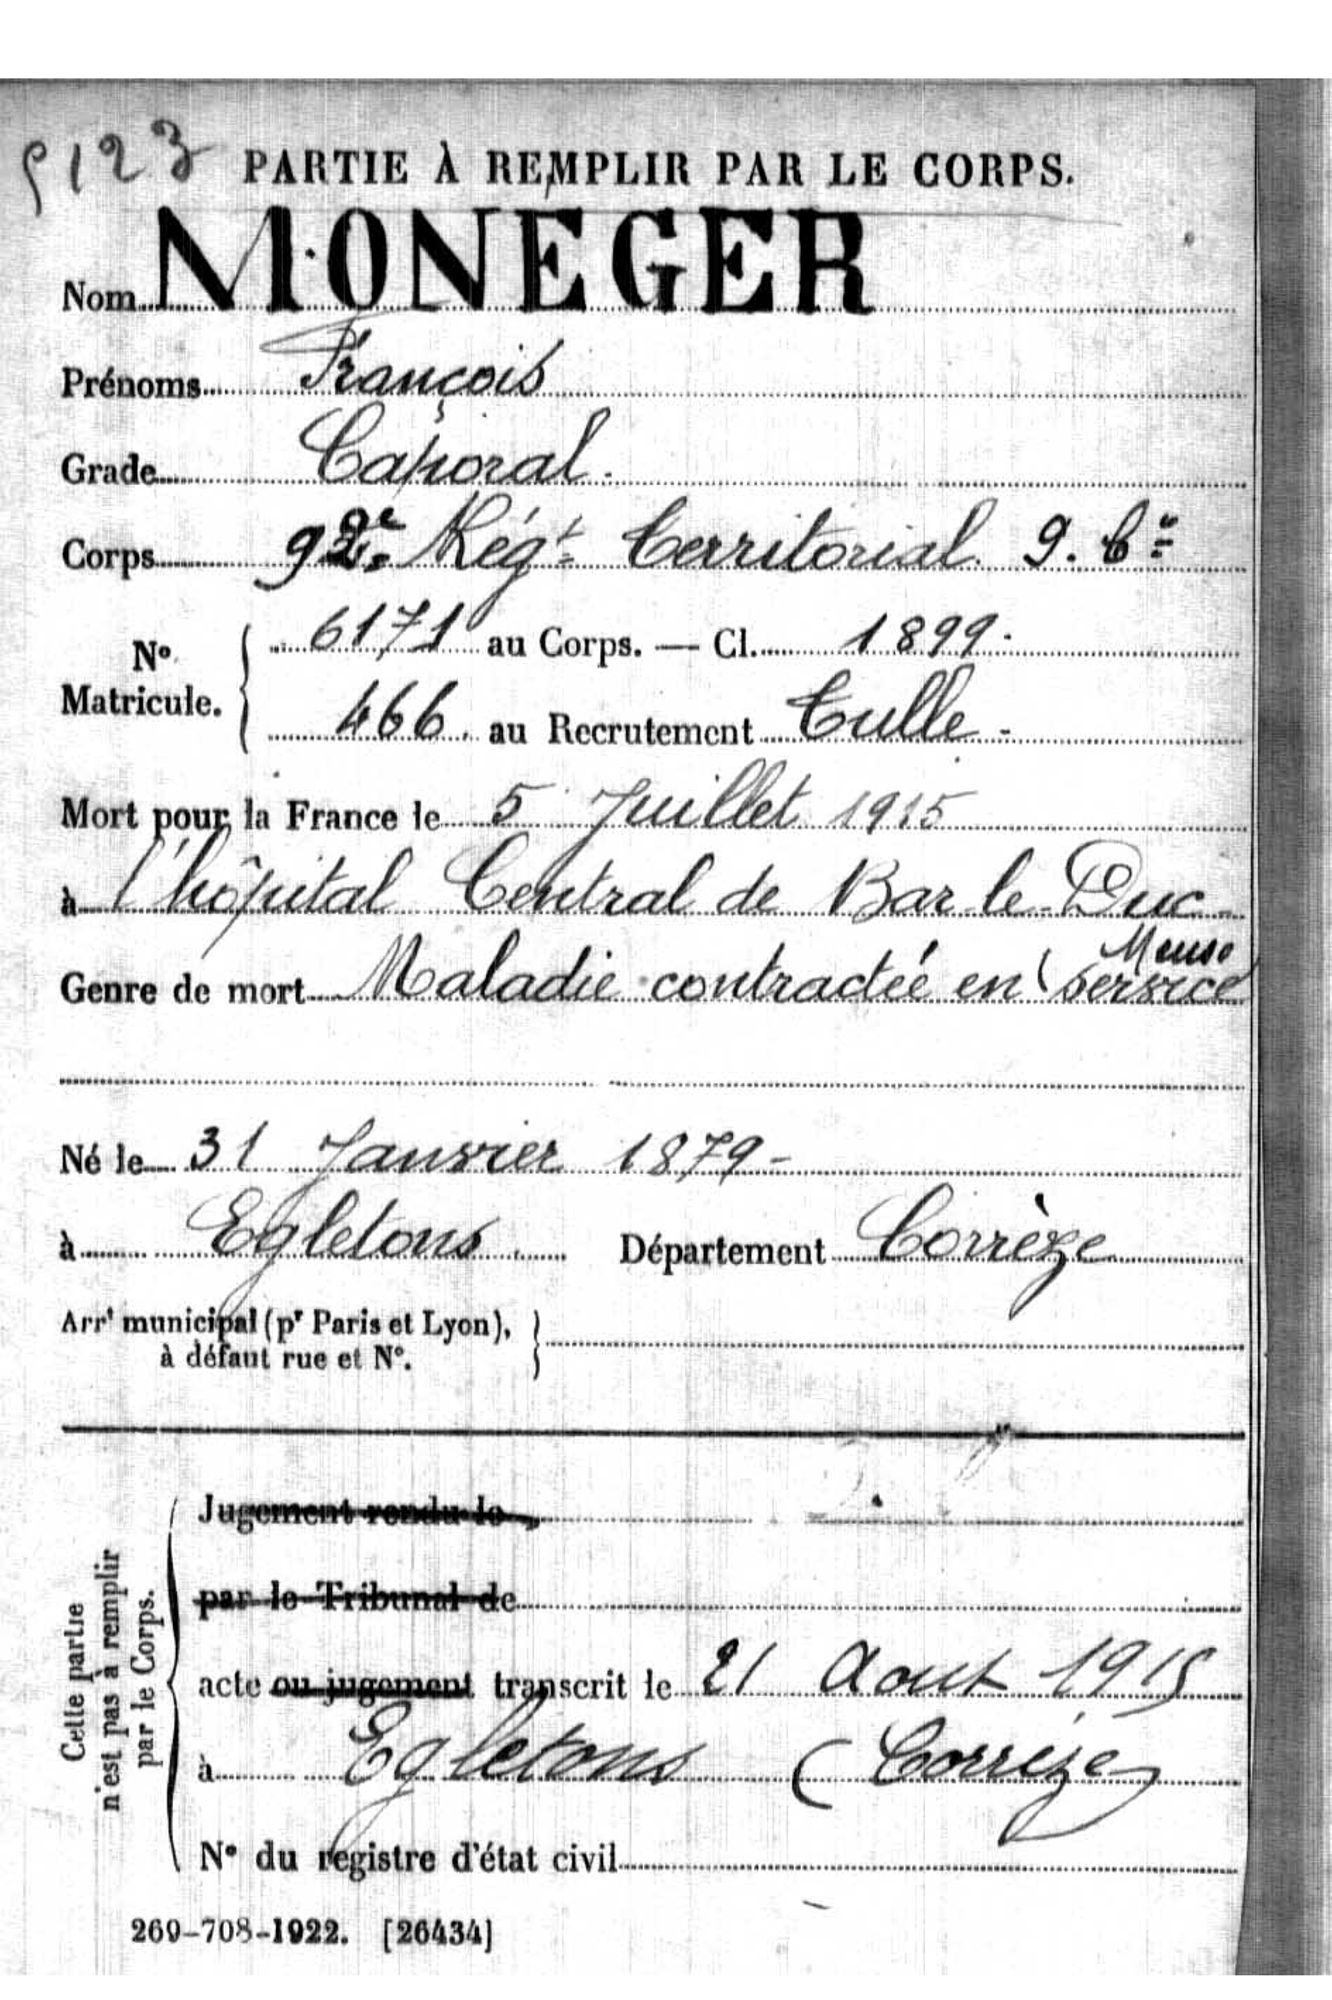 9123 PARTIE À REMPLIR PAR LE CORPS.
Nom MONEGER
Prénoms François
Grade Caporal.
Corps 92e Régt Territorial 9. Cie
No Matricule. { 6171 au Corps. — Cl. 1899.
466. au Recrutement Tulle -
Mort pour la France le 5 Juillet 1915
à l'hôpital Central de Bar le Duc
Meuse
Genre de mort Maladie contractée en service
Né le 31 Janvier 1879 -
à Egletons Département Corrèze
Arrt municipal (pr Paris et Lyon), }
à défaut rue et No.
Cette partie
n'est pas à remplir
par le Corps.
Jugement rendu le
par le Tribunal de
acte ou jugement transcrit le 21 Aout 1915
à Egletons (Corrèze)
No du registre d'état civil
269-708-1922. [26434]